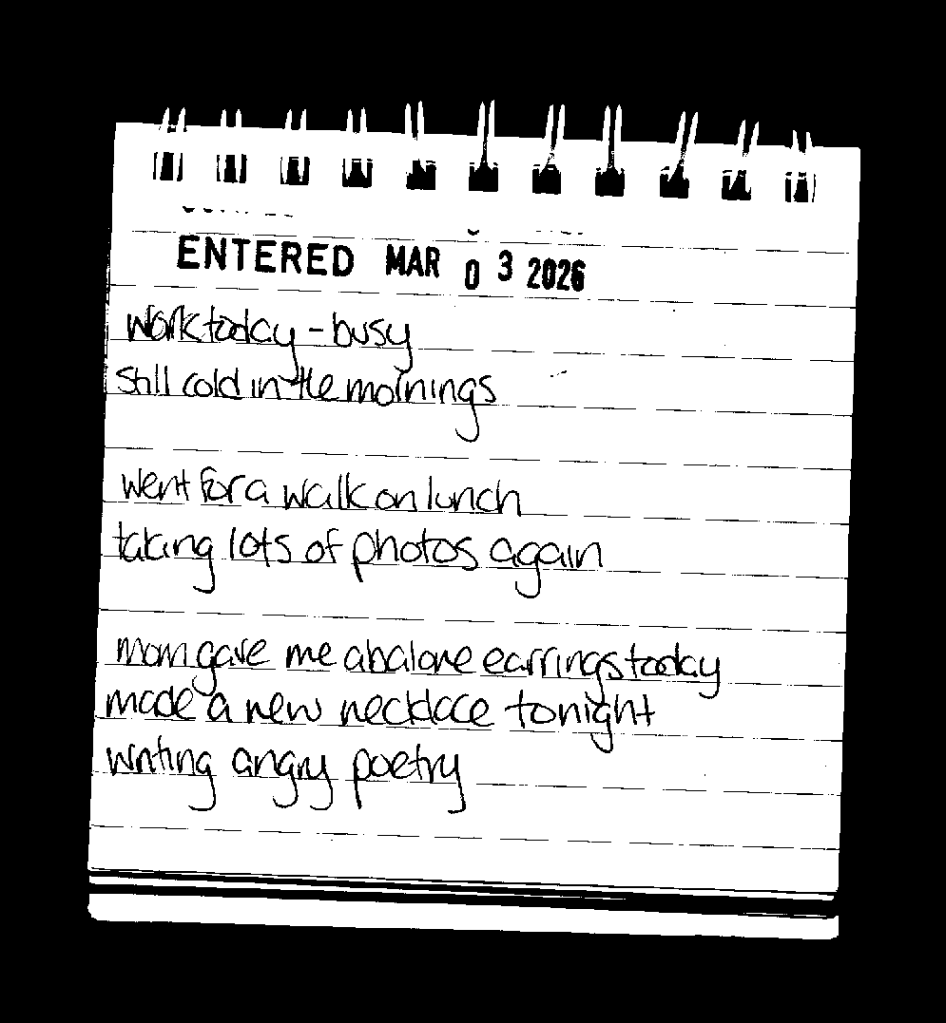 ENTERED MAR 03 2026
work today - busy
still cold in the mornings
went for a walk on lunch
taking lots of photos again
mom gave me abalone earrings today
made a new necklace tonight
writing angry poetry